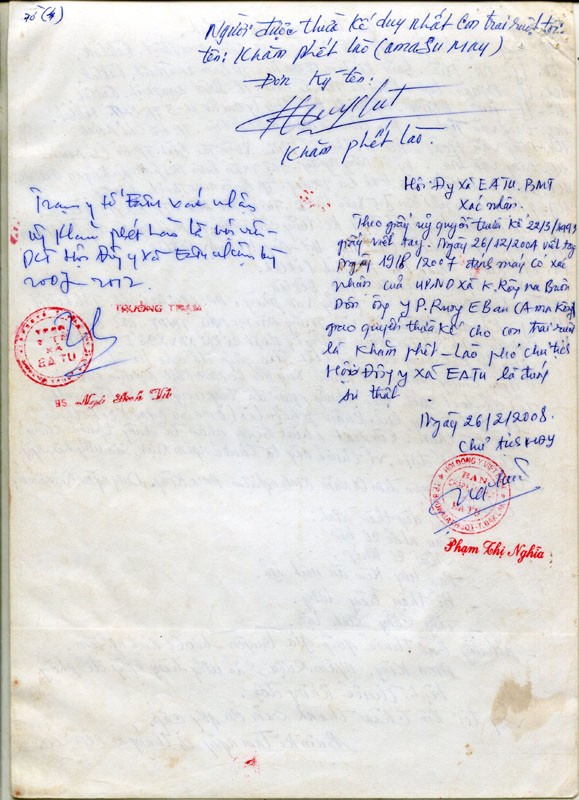 Tờ (4)
Người được thừa kế duy nhất con trai ruột tôi
tên: Khăm phết lào (amasu may)
Đơn Ký tên.
Khăm phết lào.
Trạm y tế Eatu xác nhận
Khăm phết Lào là hội viên
Hội Đông y xã Eatu nhiệm kỳ
2007- 2012
TRƯỞNG TRẠM
TRẠM
Y TẾ
XÃ
EA TU
BS. Ngô Đình Việt
Hội Đy xã EATU. BMT
Xác nhận.
Theo giấy uỷ quyền thừa kế 22/3/1993
giấy viết tay. Ngày 26/12/2004 viết tay
Ngày 19/8/2007 đánh máy có xác
nhận của UBND xã K.Rôy na Buôn
Đôn ông y P.Runy EBan (Ama Kông)
giao quyền thừa kế cho con trai ruột
là Khăm phết - Lào phó chủ tịch
Hội Đông y xã EATU là đúng
sự thật.
Ngày 26/2/2008.
Chủ tịch HĐY
HỘI ĐÔNG Y
BAN
CHẤP HÀNH
EA TU
Phạm Thị Nghĩa